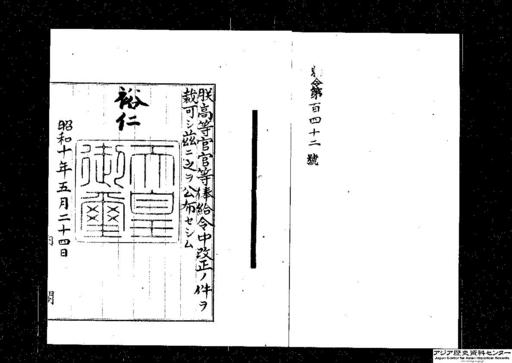 令第百四十二號
朕高等官官等俸給令中改正ノ件ヲ
裁可シ茲ニ之ヲ公布セシム
裕仁
天皇御璽
昭和十年五月二十四日
アジア歴史資料センター
Japan Center for Asian Historical Records